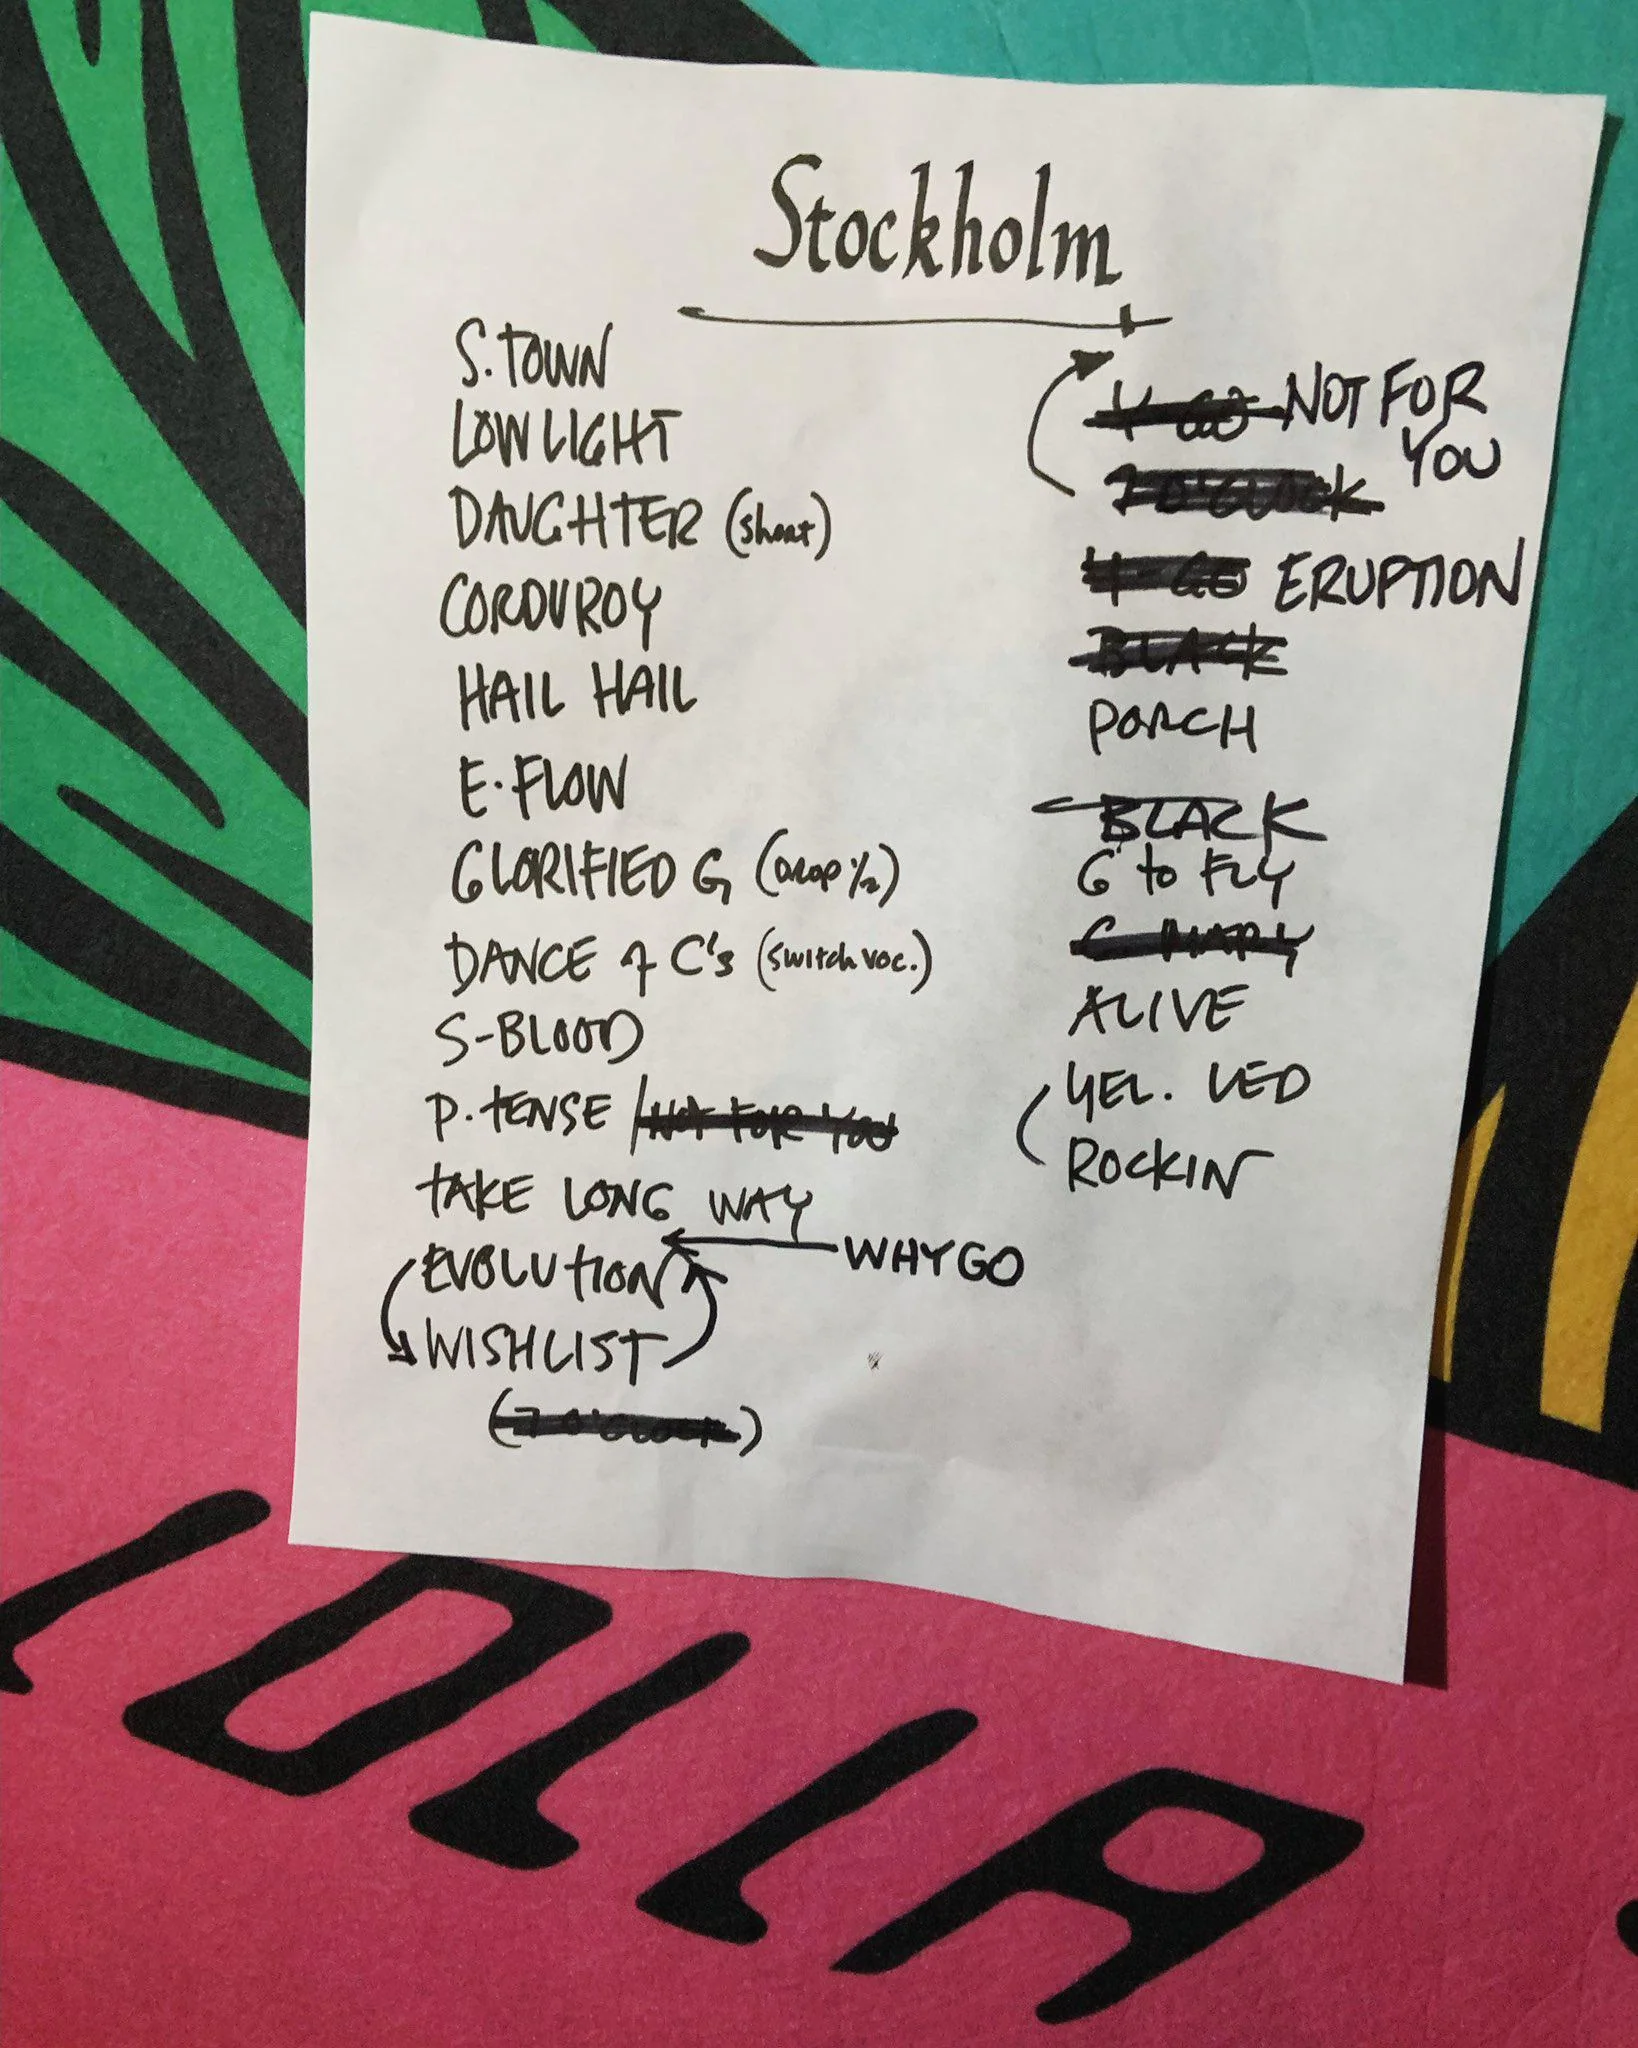 Stockholm
S. TOWN
LOW LIGHT
DAUGHTER (short)
CORDUROY
HAIL HAIL
E. FLOW
GLORIFIED G (DROP ½)
DANCE of C's (switch voc.)
S-BLOOD
P. TENSE / NOT FOR YOU
TAKE LONG WAY
WHY GO
EVOLUTION
WISHLIST
(7 O'CLOCK)
Y GO NOT FOR
YOU
7 O'CLOCK
Y-GO ERUPTION
BLACK
PORCH
BLACK
G to FLY
C MARY
ALIVE
YEL. LED
ROCKIN
LOLLA